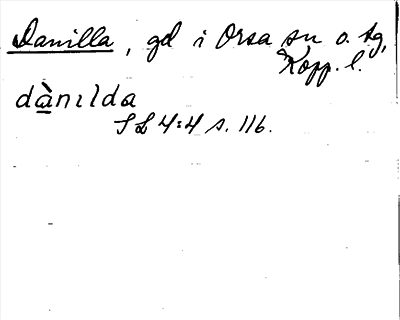 Danilla, gd i Orsa sn o. tg,
Kopp. l.
dànılda
SL 4:4 s. 116.